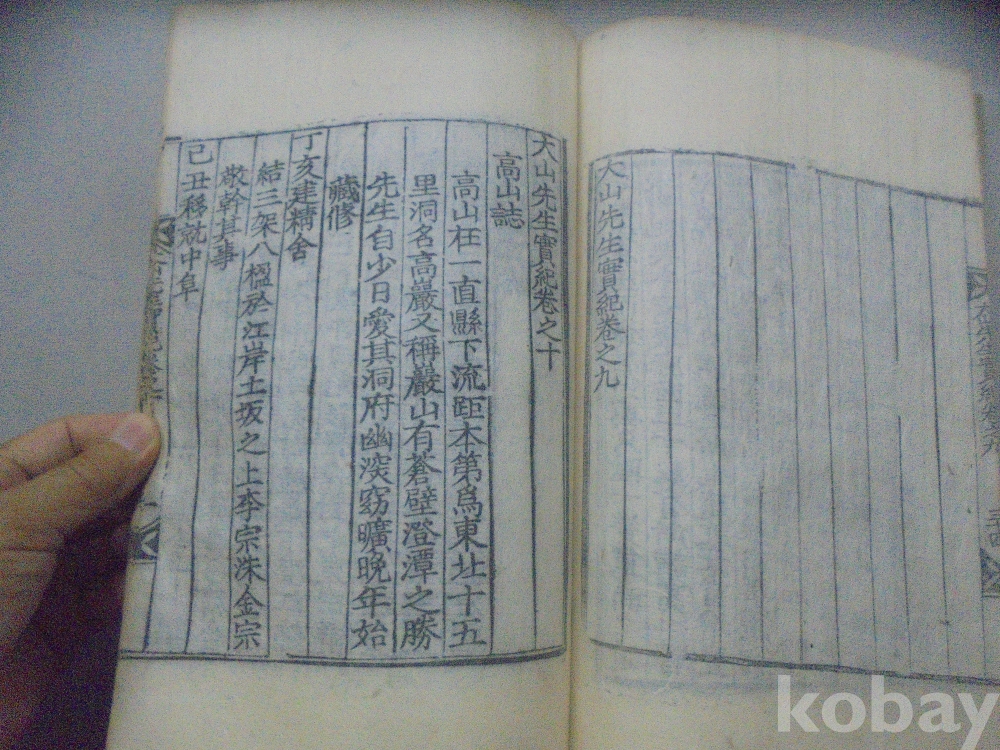 大山先生實紀卷之九
大山先生實紀卷之十
高山誌
高山在一直縣下流距本第爲東北十五
里洞名高巖又稱巖山有蒼壁澄潭之勝
先生自少日愛其洞府幽深窈曠晚年始
藏修
丁亥建精舍
結三架八楹於江岸土坂之上李宗洙金宗
敬幹其事
己丑移就中阜
kobay